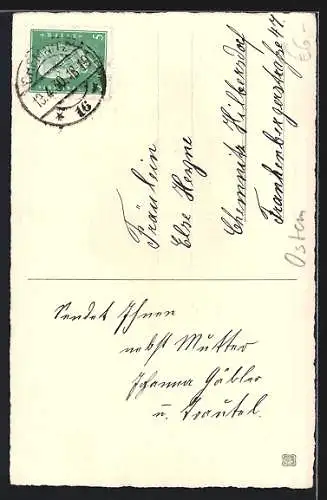 5
CHEMNITZ
13.4.30.18-19
16
Fräulein
Else Heyne
Chemnitz Hilbersdorf
Frankenbergerstraße 47.
Ostern
86-
Sendet Ihnen
nebst Mutter
Johanna Gäbler
u. Trautel.